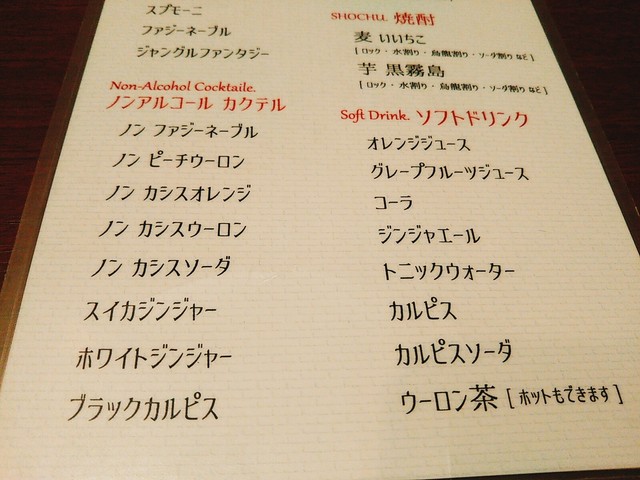 スプモーニ
ファジーネーブル
ジャングルファンタジー
Non-Alcohol Cocktaile.
ノンアルコール カクテル
ノン ファジーネーブル
ノン ピーチウーロン
ノン カシスオレンジ
ノン カシスウーロン
ノン カシスソーダ
スイカジンジャー
ホワイトジンジャー
ブラックカルピス
SHOCHU. 焼酎
麦 いいちこ
[ ロック ・ 水割り ・ 烏龍割り ・ ソーダ割り など ]
芋 黒霧島
[ ロック ・ 水割り ・ 烏龍割り ・ ソーダ割り など ]
Soft Drink. ソフトドリンク
オレンジジュース
グレープフルーツジュース
コーラ
ジンジャエール
トニックウォーター
カルピス
カルピスソーダ
ウーロン茶 [ ホットもできます ]